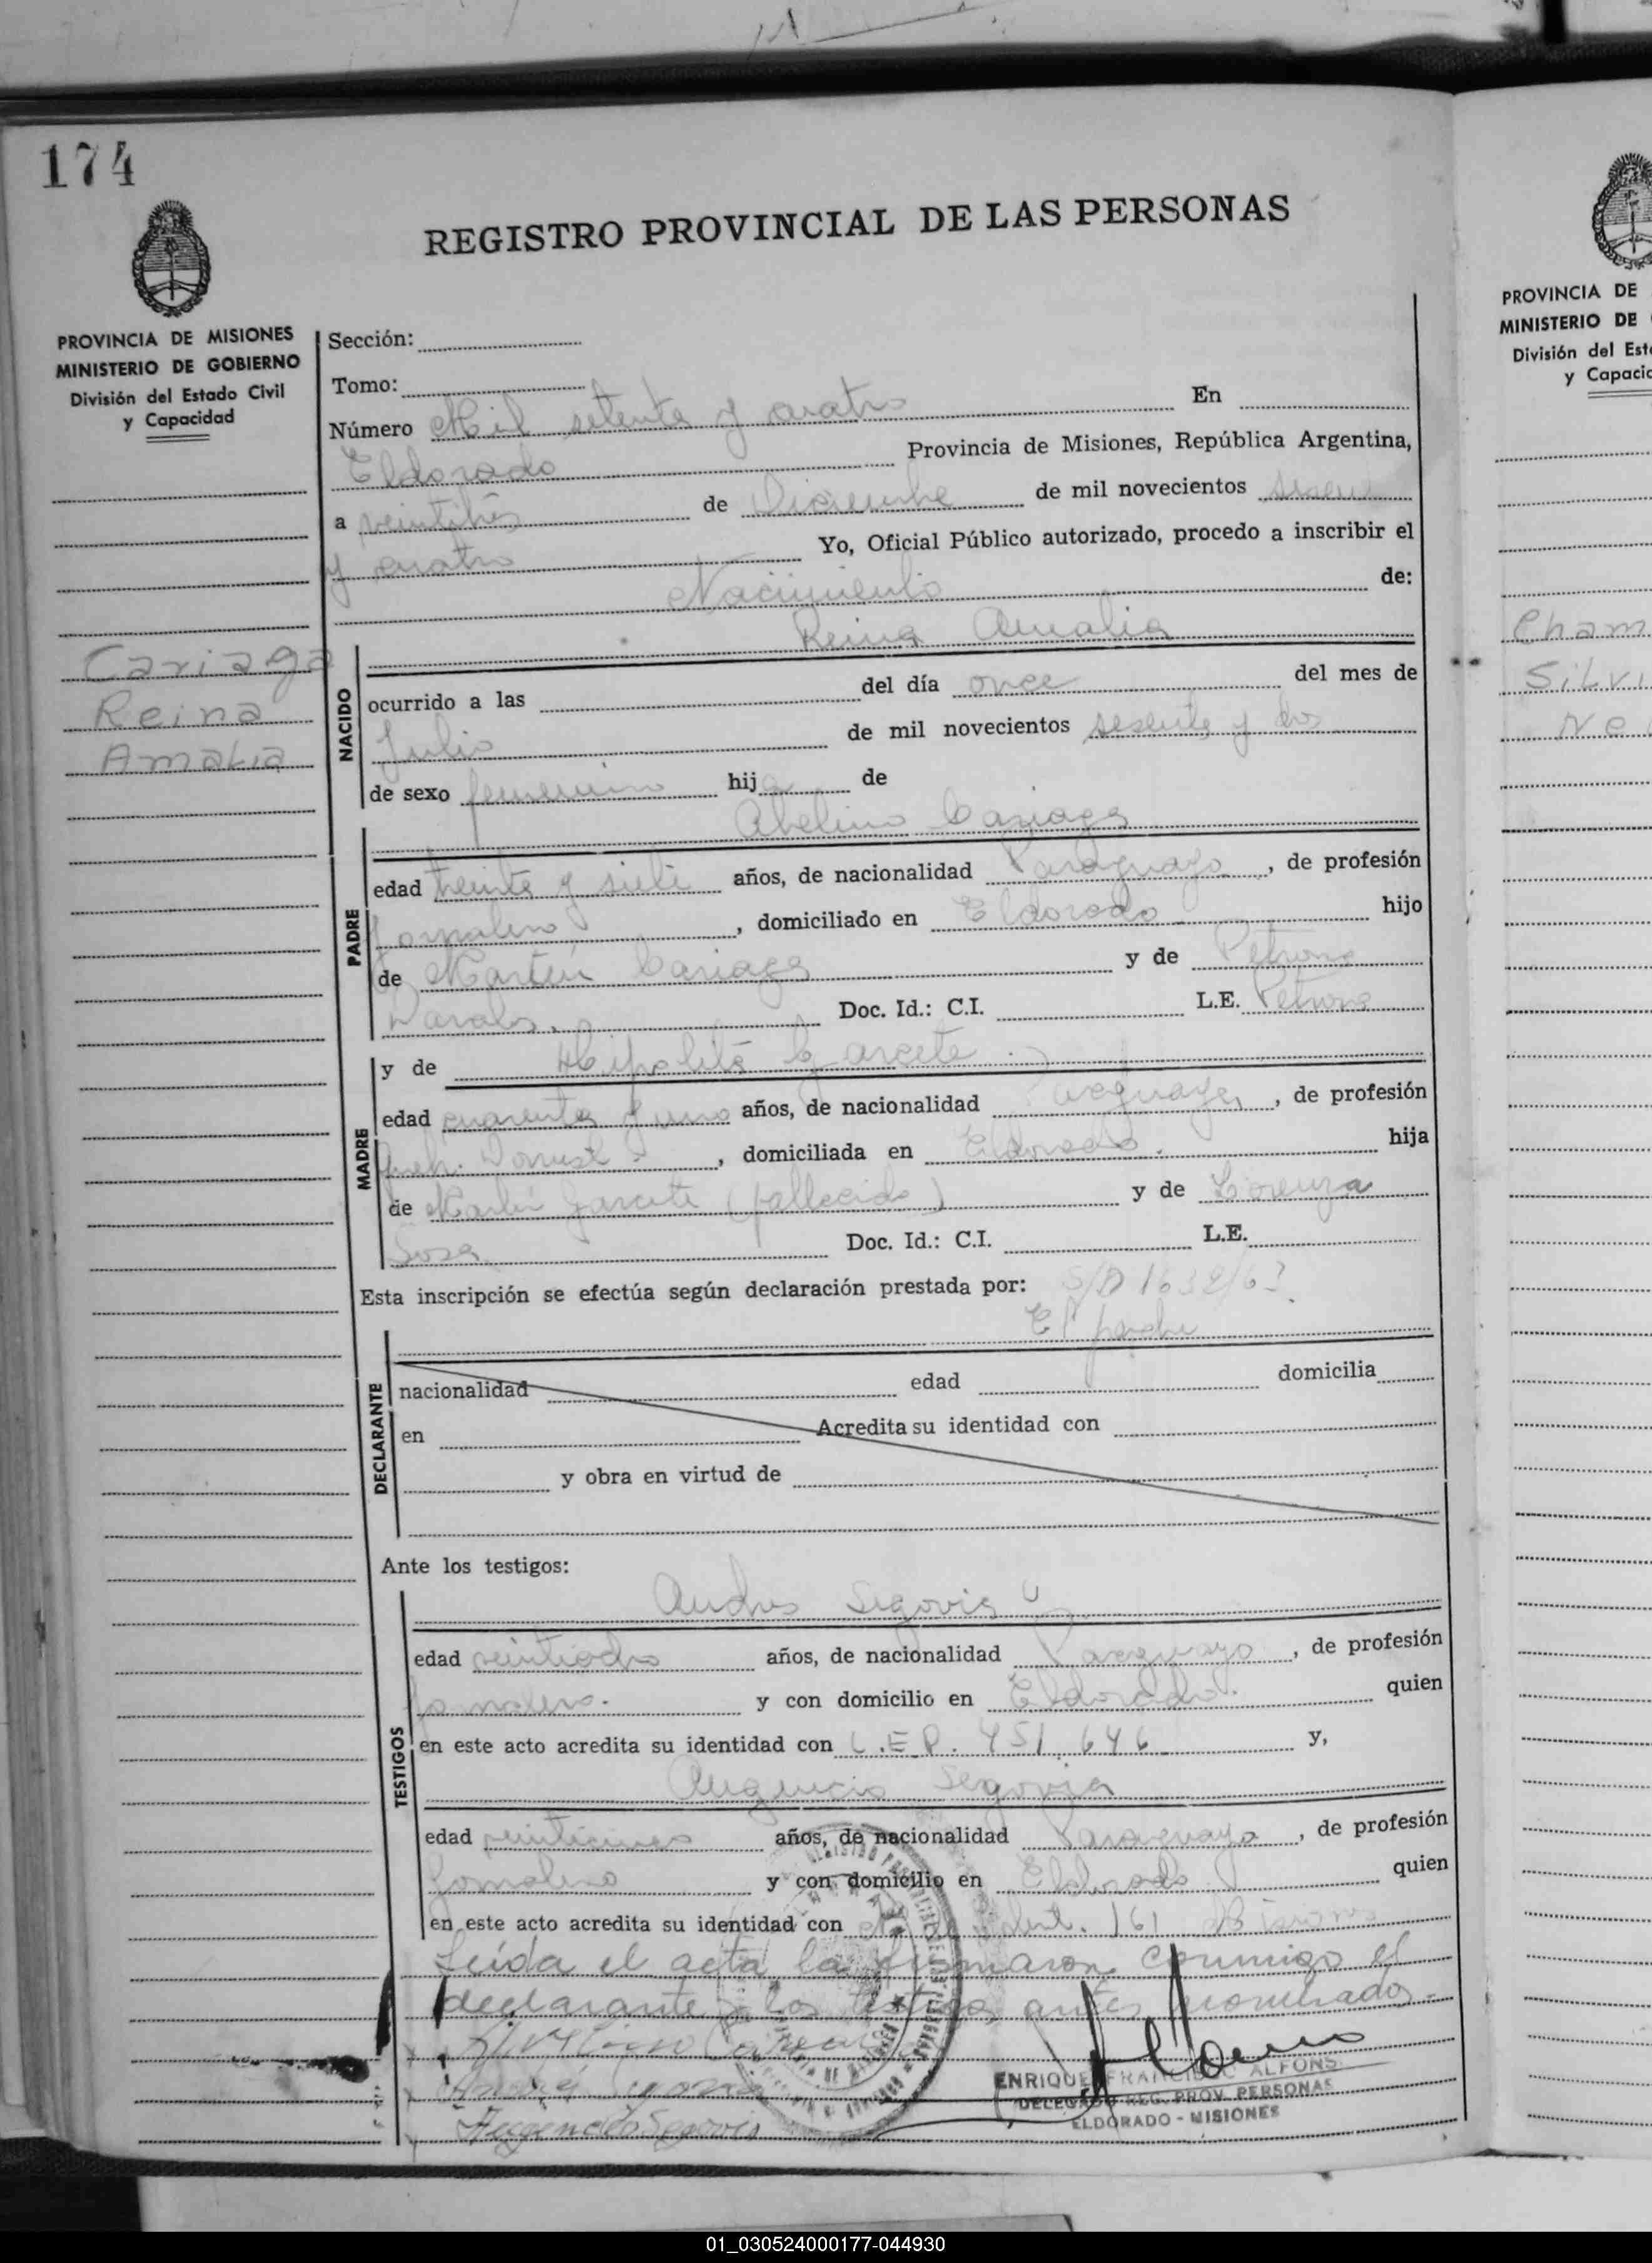 174
REGISTRO PROVINCIAL DE LAS PERSONAS
PROVINCIA DE MISIONES
MINISTERIO DE GOBIERNO
División del Estado Civil
y Capacidad
Cariaga
Reina
Amalia
Sección:
Tomo:
Número Mil setenta y cuatro En
Eldorado Provincia de Misiones, República Argentina,
a veintitrés de Diciembre de mil novecientos sesenta
y cuatro Yo, Oficial Público autorizado, procedo a inscribir el
Nacimiento de:
Reina Amalia
NACIDO
ocurrido a las del día once del mes de
Julio de mil novecientos sesenta y dos
de sexo femenino hija de
Abelino Cariaga
PADRE
edad treinta y siete años, de nacionalidad Paraguaya, de profesión
Jornalero, domiciliado en Eldorado hijo
de Martín Cariaga y de Petrona
Doc. Id.: C.I. L.E. Petrona
MADRE
y de Hipolita Garcete
edad cuarenta y uno años, de nacionalidad Paraguaya, de profesión
domiciliada en Eldorado. hija
de Martín Garcete (fallecido) y de Lorenza
Sosa Doc. Id.: C.I. L.E.
Esta inscripción se efectúa según declaración prestada por:
El padre
DECLARANTE
nacionalidad edad domicilia
en Acredita su identidad con
y obra en virtud de
Ante los testigos:
Andres Segovia
TESTIGOS
edad veintiocho años, de nacionalidad Paraguayo, de profesión
Jornalero. y con domicilio en Eldorado. quien
en este acto acredita su identidad con C.E.P. 451.646 y,
Segovia
edad veinticinco años, de nacionalidad Paraguayo, de profesión
Jornalero y con domicilio en Eldorado quien
en este acto acredita su identidad con 161
Leída el acta, la firmaron conmigo el
declarante y los testigos antes nombrados.-
Segovia
ENRIQUE FRANCISCO ALFONS
DELEGADO REG. PROV. PERSONAS
ELDORADO - MISIONES
PROVINCIA DE
MINISTERIO DE
División del Est
y Capacid
Cham
Silvi
Ne
01_030524000177-044930